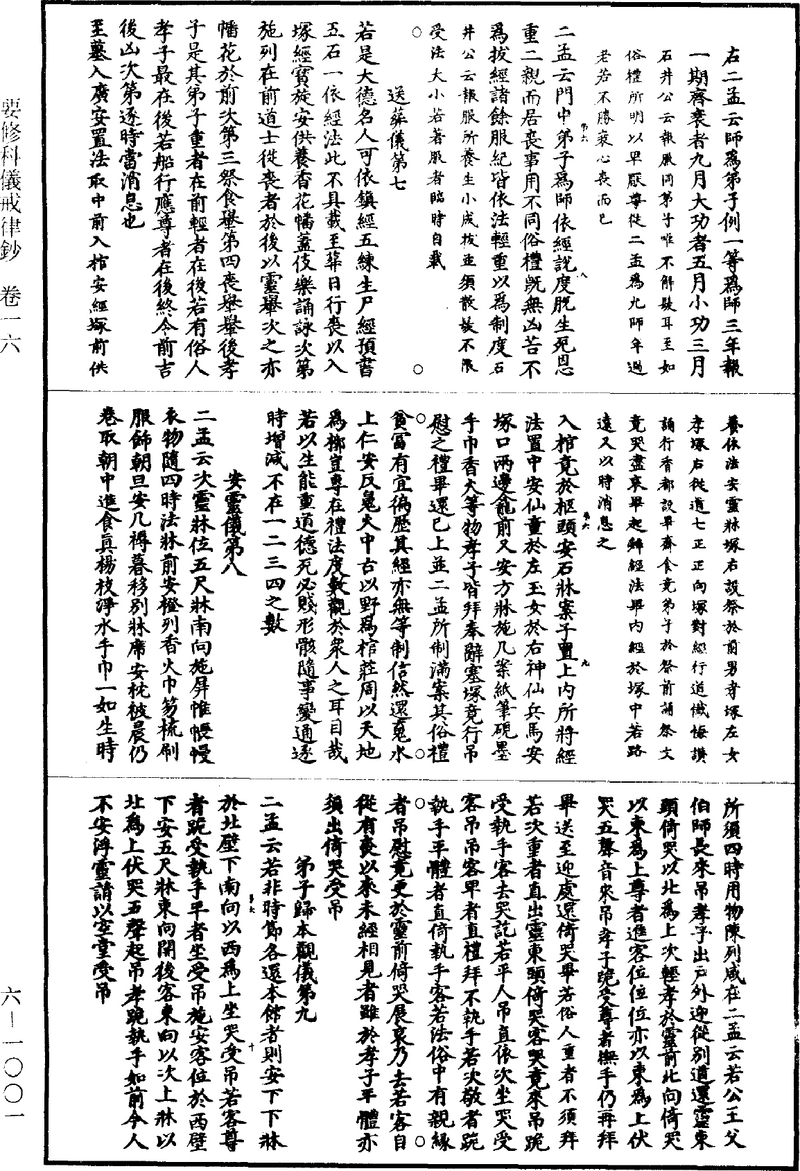 右二孟云師為弟子例一等為師三年報
一期齊衰者九月大功者五月小功三月
石井公云報服同弟子唯不解髮耳至如
俗禮所明以卑厭尊徒二孟為允師年過
老若不勝衰心喪而已
二孟云門中弟子為師依經說度脫生死恩
重二親而居喪事用不同俗禮既無凶苦不
為拔經諸餘服紀皆依法輕重以為制度石
井公云報服所養生小成拔並須散髮不限
受法大小若著服者臨時自裁
送葬儀第七
若是大德名人可依鎮經五練生尸經預書
五石一依經法此不具載至葬日行喪以入
塚經寶旋安供養香花幡蓋伎樂誦詠次第
施列在前道士從喪者於後以靈轝次之亦
幡花於前次第三祭食轝第四喪轝轝後孝
子是其弟子重者在前輕者在後若有俗人
孝子最在後若船行應尊者在後終令前吉
後凶次第逐時當消息也
至墓入廣安置法取中前入棺安經塚前供
養依法安靈牀塚右設祭於前男孝塚左女
孝塚右從道士正正向塚對經行道懺悔讚
誦行香都設畢齋食竟弟子於祭前誦祭文
竟哭盡哀畢起解經法畢內經於塚中若路
遠又以時消息之
入棺竟於柩頭安石牀案子置上內所將經
法置中安仙童於左玉女於右神仙兵馬安
塚口兩邊龕前又安方牀施几案紙筆硯墨
手巾香火等物孝子皆拜奉辭塞塚竟行吊
慰之禮畢還已上並二孟所制滿案其俗禮
貧富有宜徧歷其經亦無等制信然還冤水
上仁安反鬼火中古以野為棺莊周以天地
為槨豈專在禮法度數觀於衆人之耳目哉
若以生能重道德死必賤形骸隨事變通逐
時增減不在一二三四之數
安靈儀第八
二孟云次靈牀位五尺牀南向施屏帷帳幔
衣物隨四時法牀前安橙列香火巾笏梳刷
服飾朝旦安几褥暮移別牀席安枕被晨仍
卷取朝中進食真楊枝淨水手巾一如生時
所須四時用物陳列咸在二孟云若公王父
伯師長來吊孝子出戶外迎從別道還靈東
頭倚哭以北為上次輕孝於靈前北向倚哭
以東為上尊者進客位位位亦以東為上伏
哭五聲音來吊孝子跪受尊者撫手仍再拜
畢送至迎處還倚哭畢若俗人重者不須拜
若次重者直出靈東頭倚哭客哭竟來吊跪
受執手客去哭訖若平人吊直依次坐哭受
客吊吊客卑者直禮拜不執手若次敬者跪
執手平體者直倚執手客若法俗中有親緣
者吊慰竟更於靈前倚哭展哀乃去若客自
從有喪以來未經相見者雖於孝子平體亦
須出倚哭受吊
弟子歸本觀儀第九
二孟云若非時節各還本館者則安下下牀
於北壁下南向以西為上坐哭受吊若客尊
者跪受執手卑者坐受吊施安客位於西壁
下安五尺牀東向開後客東向以次上牀以
北為上伏哭五聲起吊孝跪執手如前今人
不安浮靈請以空堂受吊
要修科儀戒律鈔 卷一六
六—一〇〇一